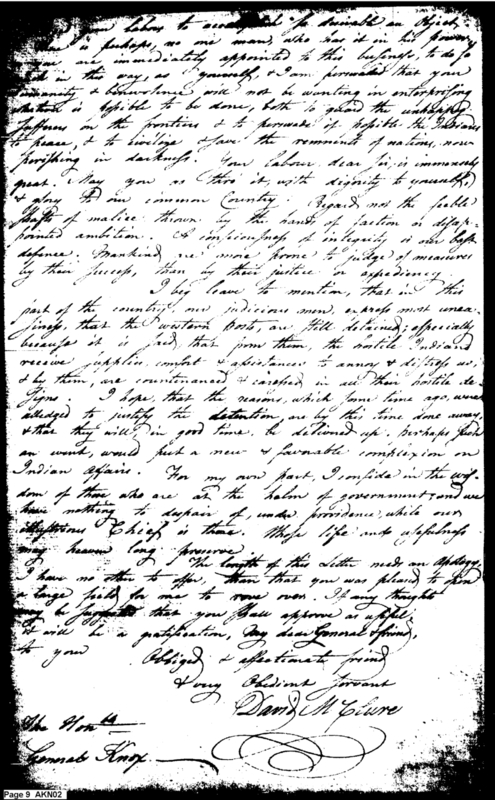 your labour to accomplish so desirable an Object,
There is perhaps, no one man, who has it in his power,
you are immediately appointed to this business, to do so
much in the way, as yourself, & I am perswaded that your
humanity & benevolence will not be wanting in enterprising
what is possible to be done, both to guard the unhappy
sufferers on the frontiers & to perswade if possible the Indians
to peace, & to civilize & save the remnants of nations, now
perishing in darkness. Your labour, dear Sir, is immensely
great. May you go thro' it, with dignity to yourself,
& glory to our common Country. Regard not the feeble
shafts of malice thrown by the hands of faction or disap-
pointed ambition. A consciousness of integrity is our best
defence. Mankind are more prone to judge of measures
by their success, than by their justice or expediency.
I beg leave to mention, that in this
part of the country, our judicious men, express most unea-
siness, that the western posts, are still detained; especially
because it is said, that from them, the hostile Indians
receive supplies, comfort & assistance, to annoy & distress us;
& by them, are countenanced & caressed in all their hostile de-
signs. I hope, that the reasons, which some time ago, were
alledged to justify the detention, are by this time done away,
& that they will, in good time, be delivered up. perhaps such
an event, would put a new & favorable complexion on
Indian Affairs. For my own part, I confide in the wis-
dom of those who are at the helm of government; and we
have nothing to despair of, under providence, while our
illustrious Chief is there. Whose life and usefulness
may heaven long preserve
The length of this Letter needs an Apology.
I have no other to offer, than that you was pleased to open
a large field for me to rove over. If any thought
may be suggested that you shall approve as useful,
it will be a gratification, My dear General & friend,
to your Obliged & affectionate friend
& very Obedient Servant
David McClure
The Honble
General Knox
Page 9 AKN02